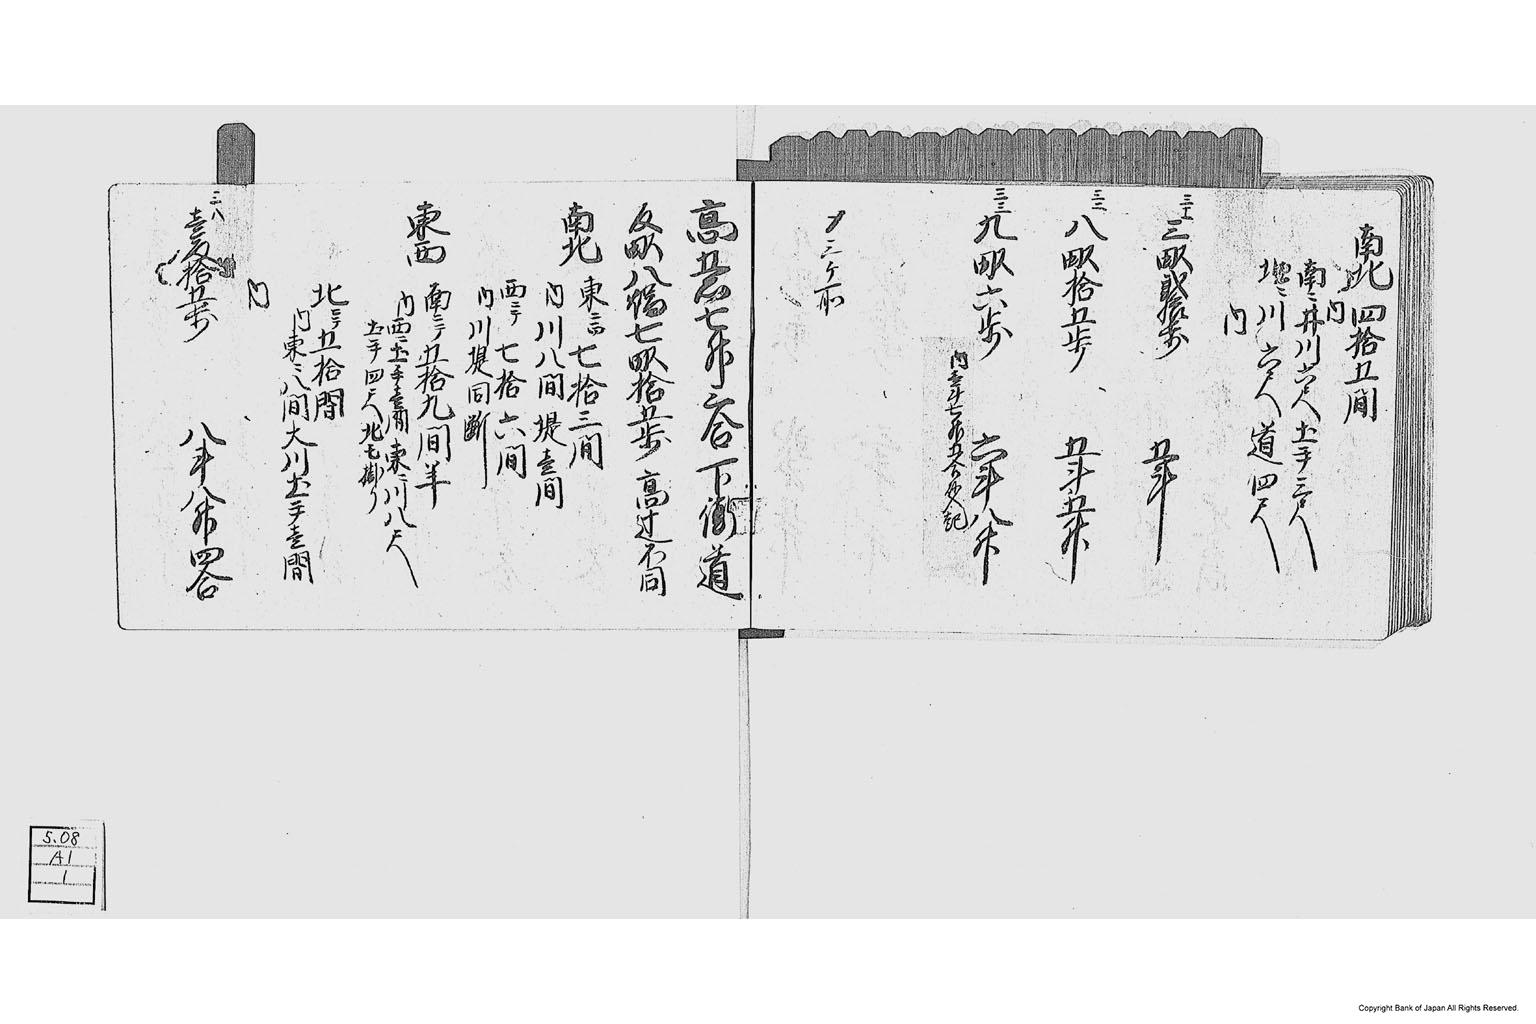 南北 四拾五間
内
南ニ井川六尺土手三尺
堀ニ川六尺道四尺
内
三畝弐拾歩 五斗
三二
八畝拾五歩 五斗五升
三三
九畝六歩 六斗八升
内壱斗七升五合
〆三ケ所
高五石七升六合 下街道
反畝八幅七畝拾五歩 高辻不同
南北
東ニ而七拾三間
内川八間堤壱間
西ニテ七拾六間
内川堤同断
東西
南ニテ五拾九間半
内西ニ土手壱間東ニ川八尺
土手四尺北も掛り
北ニテ五拾間
内東ニ八間大川土手壱間
内
二八
壱畝拾五歩 八斗八升四合
5.08
A1
1
Copyright Bank of Japan All Rights Reserved.